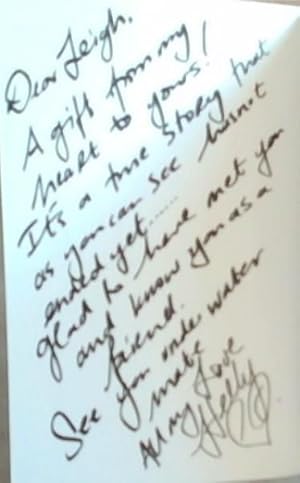 Dear Leigh,
A gift from my
heart to yours!
It's a true story that
as you can see hasn't
ended yet......
glad to have met you
and know you as a
friend.
See you under water
mate
All my Love
Kelly